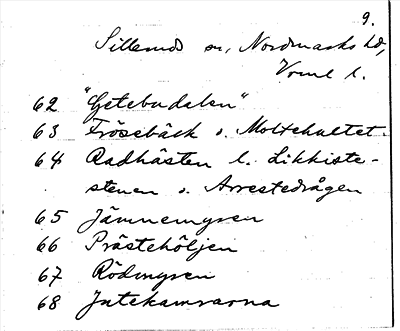 9.
Sillerud sn, Nordmarks hd,
Vrml l.
62 "Getebudalen"
63 Frösebäck o. Moltehultet.
64 Radhästen l. Likkiste-
stenen o. Arrestedrågen
65 Jämnemyren
66 Prästehöljen
67 Rödmyren
68 Jutekamrarna